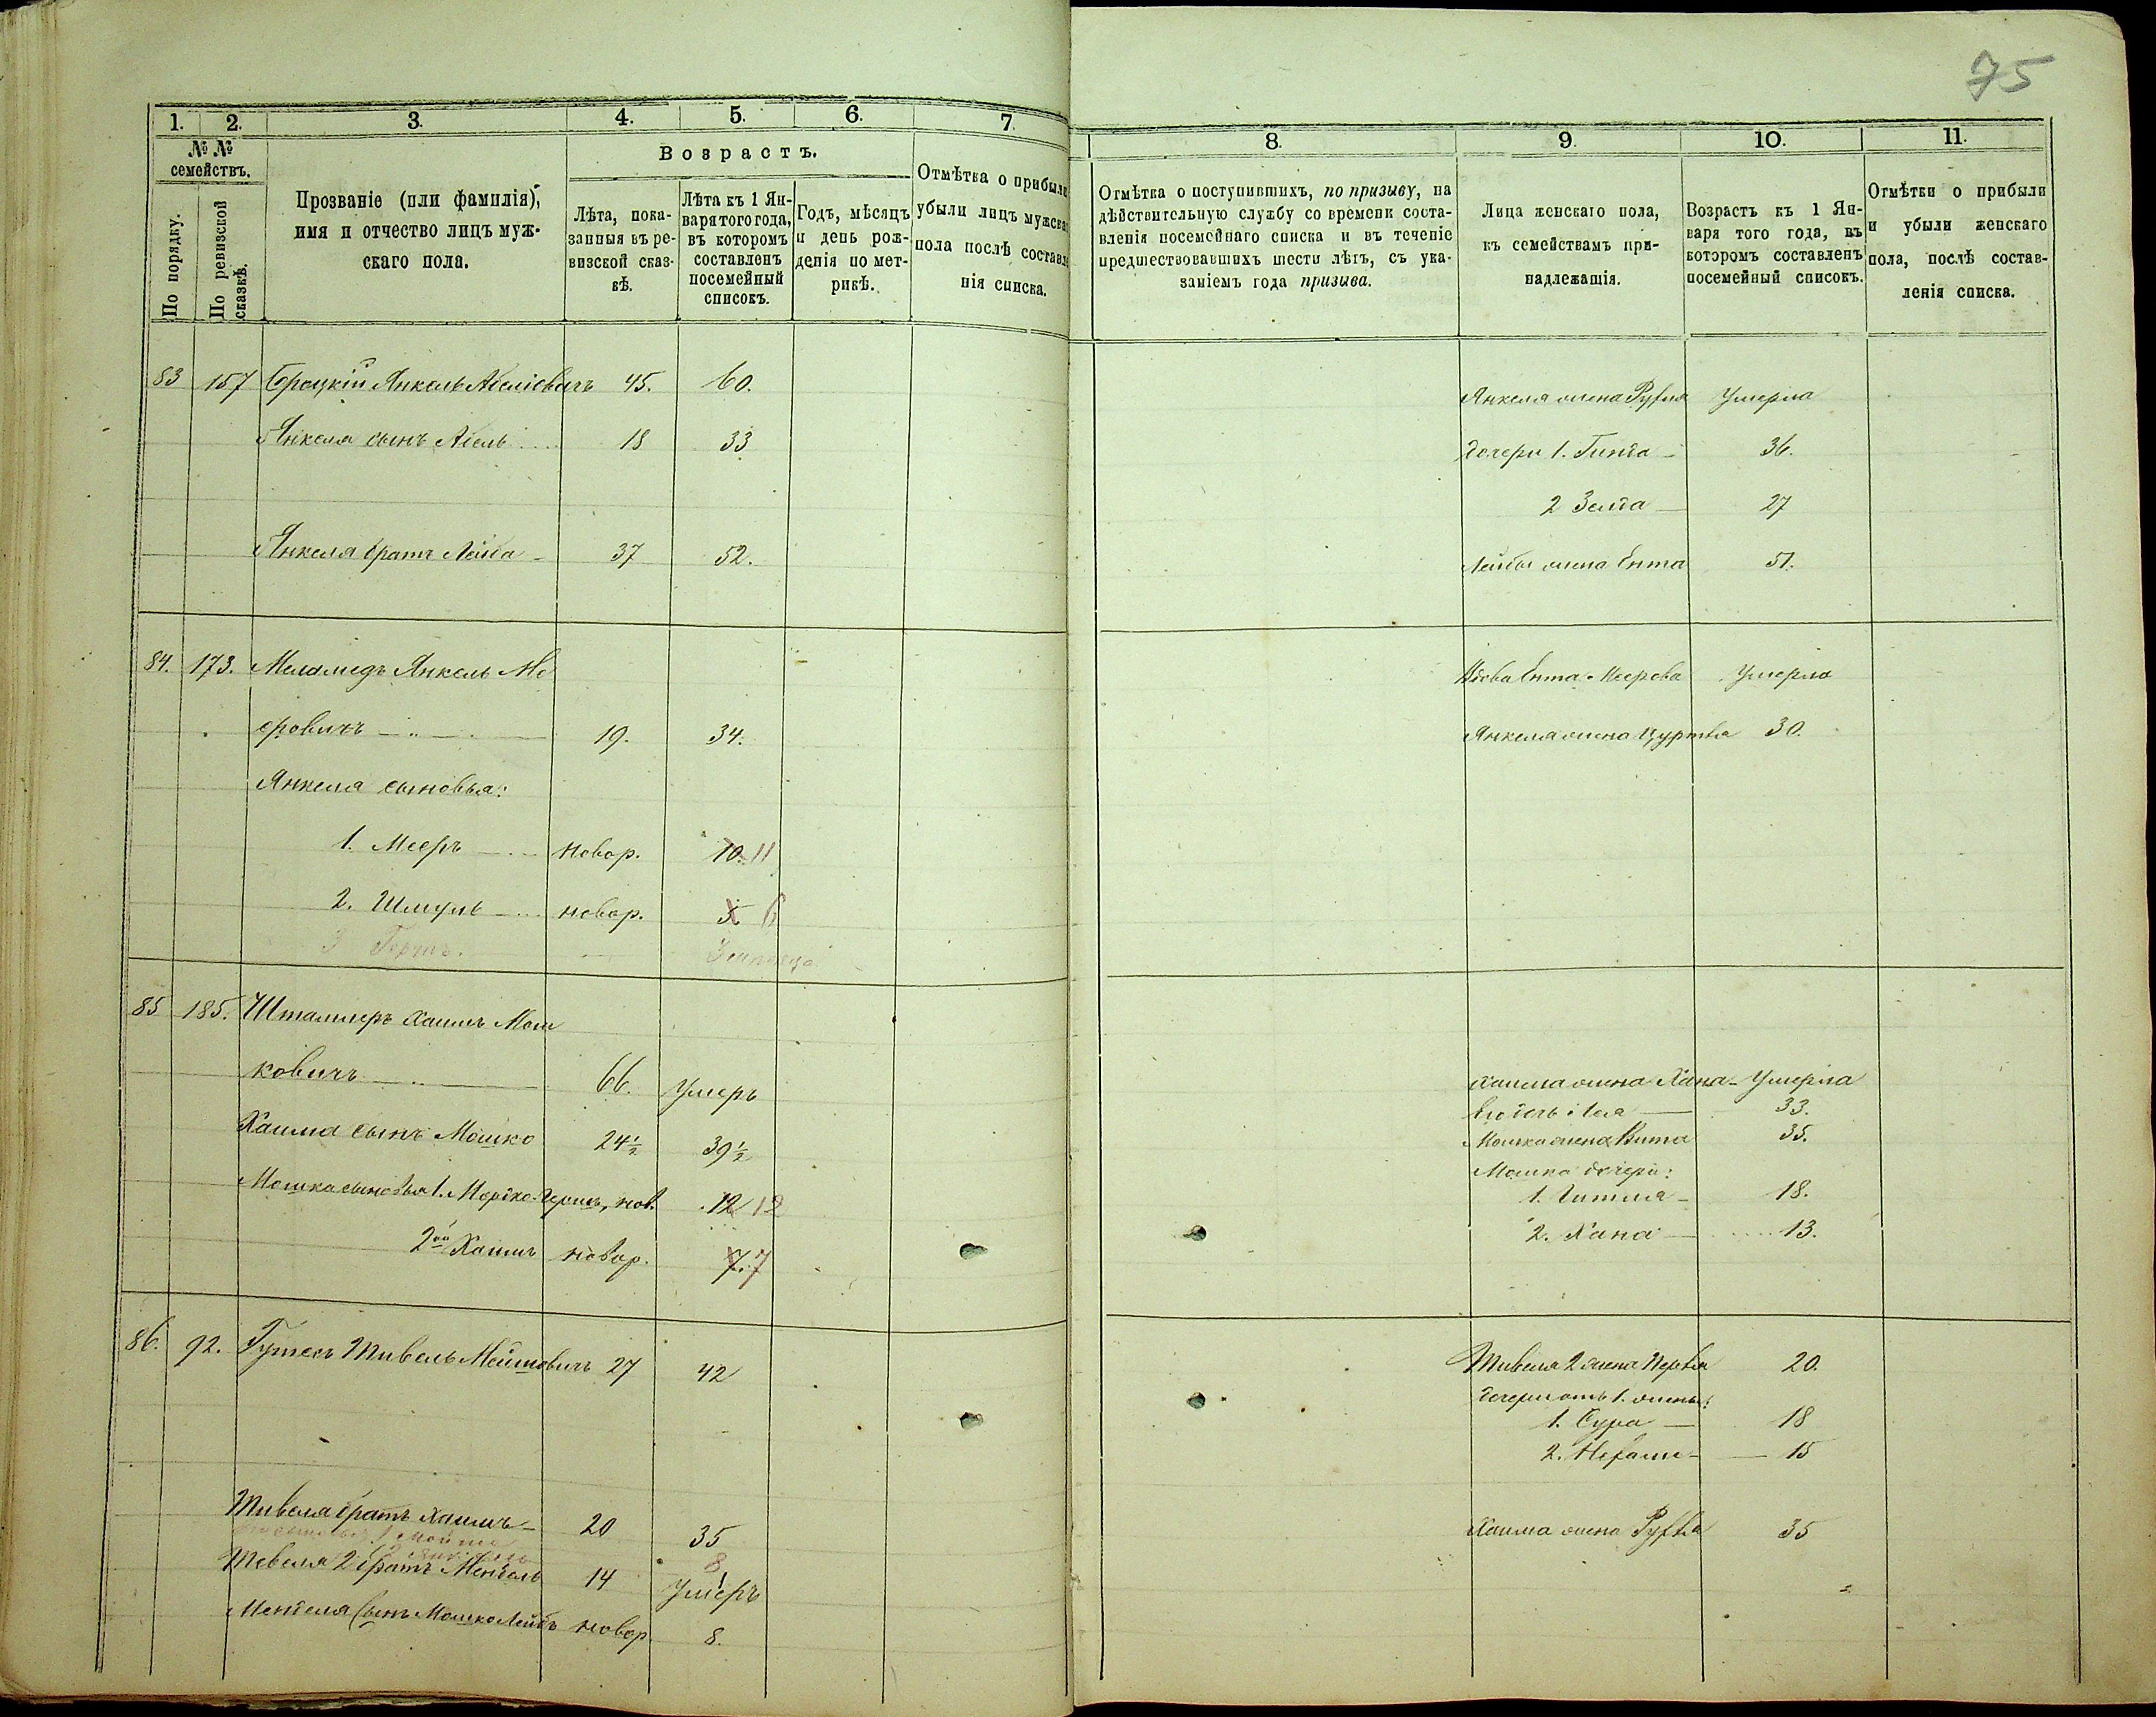 75
1. 2. 3. 4. 5. 6. 7.
№ №
семействъ.
По порядку.
По ревизской сказкѣ.
Прозваніе (или фамилія),
имя и отчество лицъ муж-
скаго пола.
Возрастъ.
Лѣта, пока-
занныя въ ре-
визской сказ-
кѣ.
Лѣта къ 1 Ян-
варя того года,
въ которомъ
составленъ
посемейный
списокъ.
Годъ, мѣсяцъ
и день рож-
денія по мет-
рикѣ.
Отмѣтка о прибыли
убыли лицъ мужска
пола послѣ составл
нія списка.
83 157 Янкель 45. 60.
Янкеля сынъ Абель 18 33
Янкеля братъ Лейба 37 52.
84. 173. Меламедъ Янкель Ме
еровичъ 19. 34.
Янкеля сыновья:
1. Мееръ новор. 10. 11
2. Шмуль новор. 5. 6
3
85 185. Хаимъ Мош
ковичъ 66. Умеръ
Хаима сынъ Мошко 24½ 39½
Мошка сыновья 1. Мордко-Герш, нов. 12 12
2ой Хаимъ новор. 7. 7
86. 92. Тивель 27 42
Тивеля братъ Хаимъ 20 35
8
Тевеля 2 братъ Мендель 14 Умеръ
Менделя сынъ Мошко Лейбъ новор. 8.
8. 9. 10. 11.
Отмѣтка о поступившихъ, по призыву, на
дѣйствительную службу со времени соста-
вленія посемейнаго списка и въ теченіе
предшествовавшихъ шести лѣтъ, съ ука-
заніемъ года призыва.
Лица женскаго пола,
къ семействамъ при-
надлежащія.
Возрастъ къ 1 Ян-
варя того года, въ
которомъ составленъ
посемейный списокъ.
Отмѣтки о прибыли
и убыли женскаго
пола, послѣ состав-
ленія списка.
Янкеля жена Рухля Умерла
дочери 1. Гинда 36.
2 Зелда 27
Лейбы жена Ента 51.
Вдова Ента Меерова Умерла
Янкеля жена 30.
Хаима жена Хана Умерла
33.
Мошка жена 35.
Мошка дочери:
1. Гитля 18.
2. Хана 13.
Тивеля 2 жена 20.
дочери отъ 1. жены:
1. Сура 18
2. Нехаме 15
Хаима жена Рухля 35